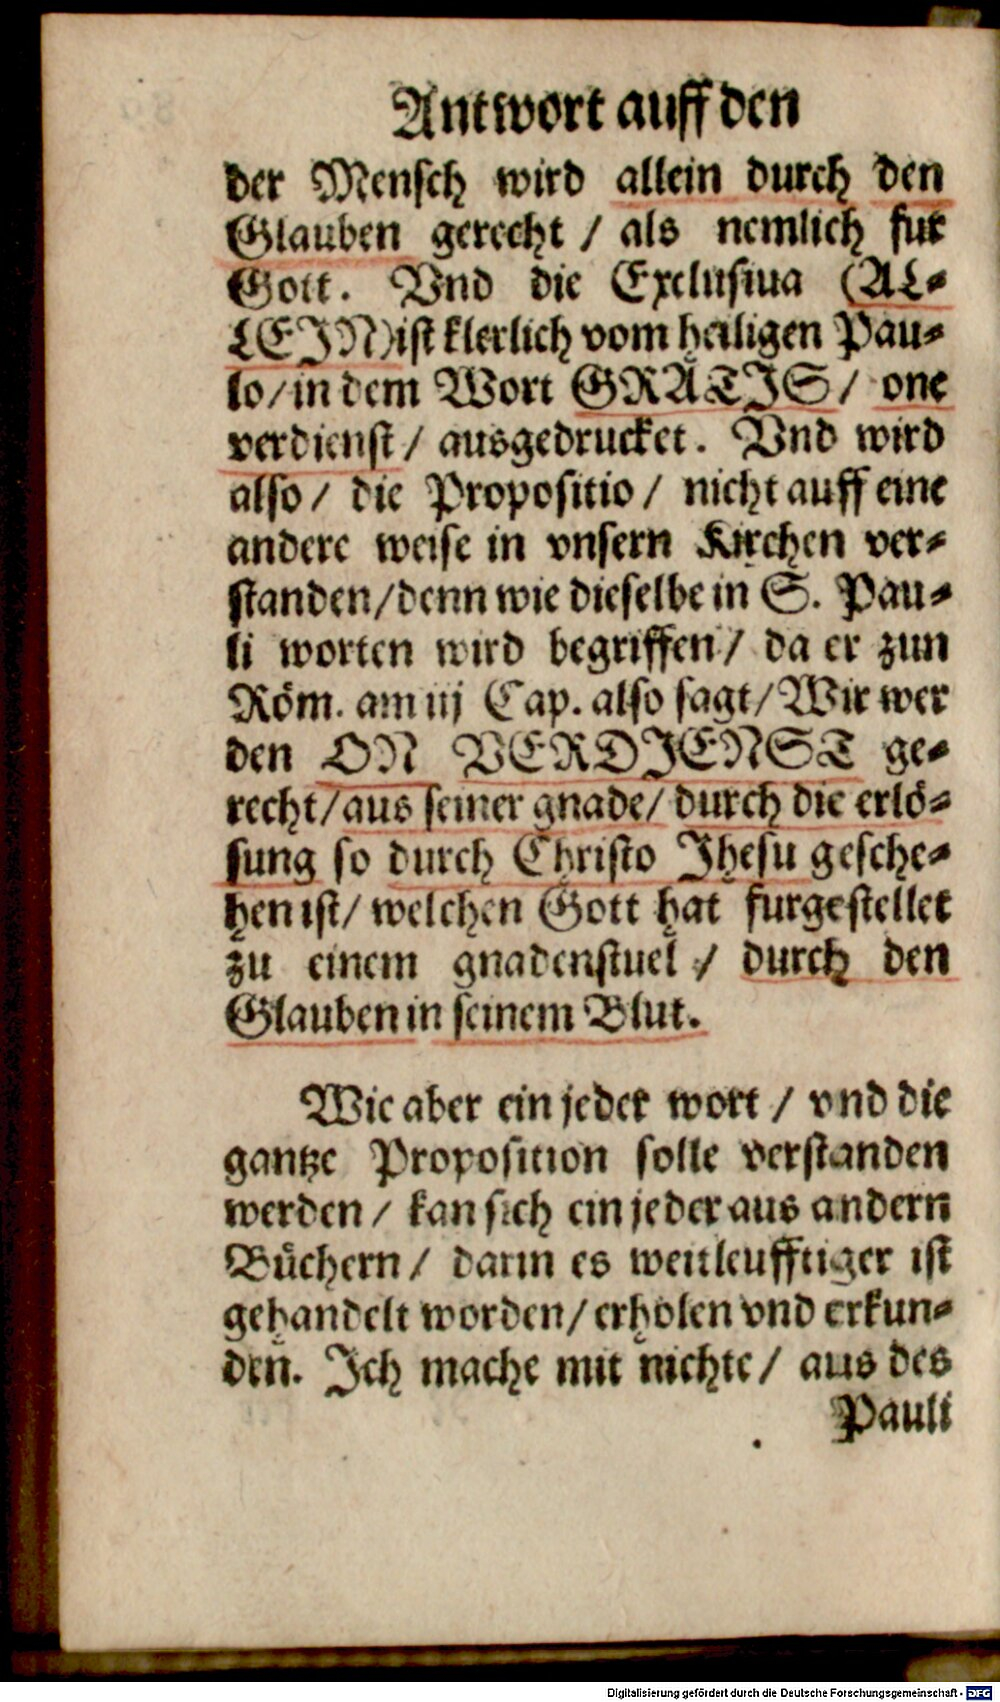 Antwort auff den
der Mensch wird allein durch den
Glauben gerecht / als nemlich fur
Gott. Vnd die Exclusiua (AL-
LEIN) ist klerlich vom heiligen Pau-
lo / in dem Wort GRATIS / one
verdienst / ausgedrucket. Vnd wird
also / die Propositio / nicht auff eine
andere weise in vnsern Kirchen ver-
standen / denn wie dieselbe in S. Pau-
li worten wird begriffen / da er zun
Röm. am iij Cap. also sagt / Wir wer
den ON VERDIENST ge-
recht / aus seiner gnade / durch die erlö-
sung so durch Christo Jhesu gesche-
hen ist / welchen Gott hat furgestellet
zu einem gnadenstuel / durch den
Glauben in seinem Blut.
Wie aber ein jeder wort / vnd die
gantze Proposition solle verstanden
werden / kan sich ein jeder aus andern
Büchern / darin es weitleufftiger ist
gehandelt worden / erholen vnd erkun-
den. Ich mache mit nichte / aus des
Pauli
Digitalisierung gefördert durch die Deutsche Forschungsgemeinschaft - DFG